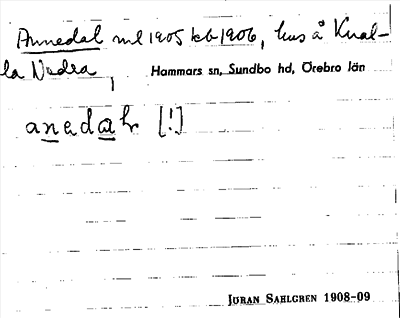 Annedal ml 1905 kb 1906, hus å Knal-
la Nedra,
Hammars sn, Sundbo hd, Örebro län
anedalr [!]
JÖRAN SAHLGREN 1908-09